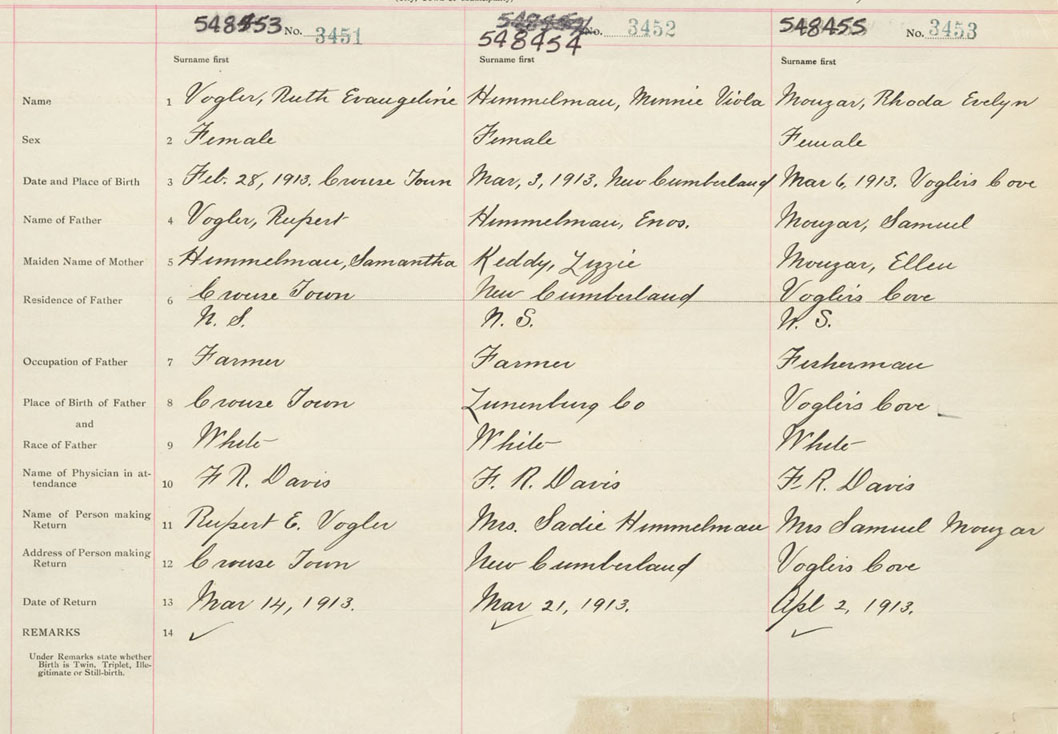 548453 No. 3451 548454 No. 3452 548455 No. 3453
Surname first Surname first Surname first
Name 1 Vogler, Ruth Evangeline Himmelman, Minnie Viola Mouzar, Rhoda Evelyn
Sex 2 Female Female Female
Date and Place of Birth 3 Feb. 28, 1913. Crouse Town Mar, 3, 1913. New Cumberland Mar 6, 1913. Voglers Cove
Name of Father 4 Vogler, Rupert Himmelman, Enos. Mouzar, Samuel
Maiden Name of Mother 5 Himmelman, Samantha Keddy, Lizzie Mouzar, Ellen
Residence of Father 6 Crouse Town New Cumberland Voglers Cove
N. S. N. S. N. S.
Occupation of Father 7 Farmer Farmer Fisherman
Place of Birth of Father 8 Crouse Town Lunenburg Co Voglers Cove
and
Race of Father 9 White White White
Name of Physician in at-
tendance 10 F R. Davis F. R. Davis F. R. Davis
Name of Person making
Return 11 Rupert E. Vogler Mrs. Sadie Himmelman Mrs Samuel Mouzar
Address of Person making
Return 12 Crouse Town New Cumberland Voglers Cove
Date of Return 13 Mar 14, 1913. Mar 21, 1913. Apl 2, 1913.
REMARKS 14 ✓ ✓ ✓
Under Remarks state whether
Birth is Twin, Triplet, Ille-
gitimate or Still-birth.